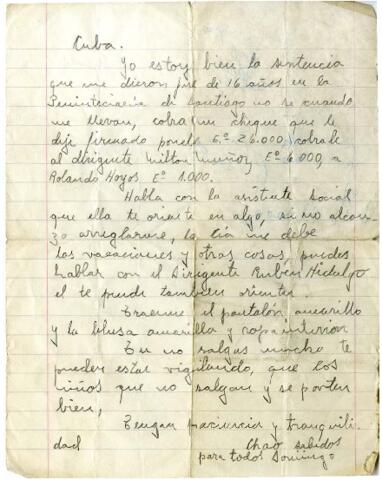 Cuba.
Yo estoy bien la sentencia
que me dieron fue de 16 años en la
Peninteciaria de Santiago no se cuando
me llevan, cobra un cheque que te
dije firmado ponele Eº 26.000 cobrale
al dirigente Milton Muñoz, Eº 6.000, a
Rolando Hoyos Eº 1.000.
Habla con la asistente social
que ella te oriente en algo, si no alcan-
zo arreglarme, la Cía me debe
las vacaciones y otras cosas, puedes
hablar con el Dirigente Rubén Hidalgo
el te puede tambien orientar.
Traeme el pantalón amarillo
y la blusa amarilla y ropa interior
Tu no salgas mucho te
pueden estar vigilando, que los
niños que no salgan y se porten
bien,
Tengan paciencia y tranquili
dad Chao saludos
para todos Domingo